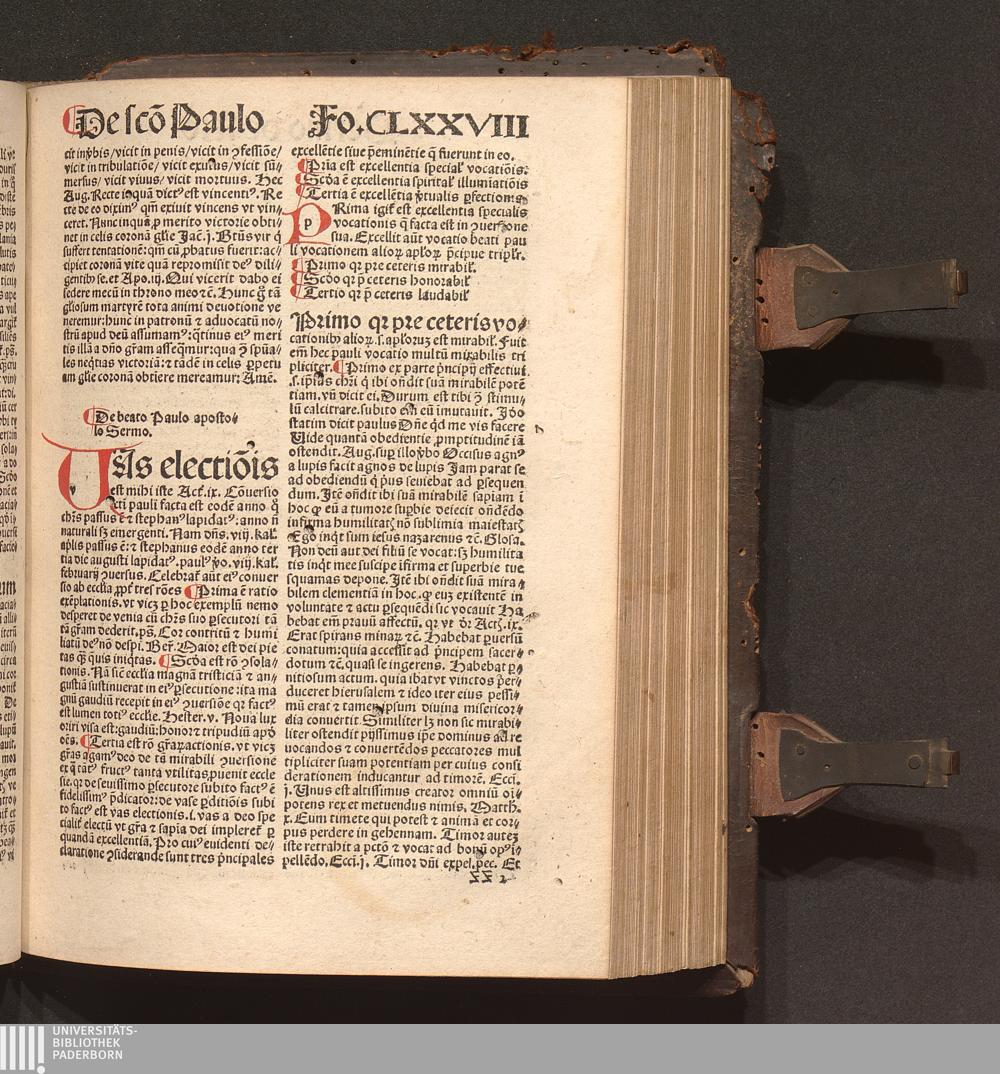 De scõ Paulo
Fo. CLXXVIII
cit in ꝟbis/vicit in penis/vicit in ꝯfessiõe/
vicit in tribulatiõe/ vicit exutus/ vicit sũ-
mersus/ vicit viuus/ vicit mortuus. Hec
Aug. Recte in quã dictꝰ est vincentiꝰ. Re
cte de eo diximꝰ qm̃ exiuit vincens vt vin
ceret. Nunc inquã ꝓ merito victorie obti
net in celis coronã glie Jac̃. j. Btũs vir q̃
suffert tentationẽ: qm̃ cũ ꝓbatus fuerit: ac-
cipiet coronã vite quã repromisit deꝰ dili
gentibꝰ se. et Apo. iij. Qui vicerit dabo ei
sedere mecũ in throno meo ⁊c̃. Hunc g̊ tã
gl̃iosum martyrẽ tota animi deuotione ve
neremur: hunc in patronũ ⁊ aduocatũ no-
strũ apud deũ assumamꝰ: q̃tinus eiꝰ meri
tis illã a dño gr̃am asseq̃mur: qua ꝯ spũa-
les neq̃tias victoriã: ⁊ tãdẽ in celis ꝑpetu
am gl̃ie coronã obtiere mereamur: Amẽ.
De beato Paulo aposto-
lo Sermo.
Uas electiõis
est mihi iste Act̃. ix. Cõuersio
scti pauli facta est eodẽ anno q̊
chr̃s passus ẽ ⁊ stephanꝰ lapidatꝰ: anno ñ
naturali sꝫ emergenti. Nam dñs. viij. kal̃.
aplis passus ẽ: ⁊ stephanus eodẽ anno ter
tia die augusti lapidatꝰ. paulꝰ ꝟo. viij. kal̃.
februarij ꝯuersus. Celebrat̃ aũt eiꝰ conuer
sio ab ecclia ꝓpt̃ tres rões Prima ẽ ratio
exẽplationis. vt vicꝫ ꝑ hoc exemplũ nemo
desperet de venia cũ chr̃s suo ꝑsecutori tã
tã gr̃am dederit. ps̃. Cor contritũ ⁊ humi
liatũ deꝰ nõ despi. Ber̃. Maior est dei pie
tas q̃ quis iniq̃tas. Scd̃a est rõ ꝯsola-
tionis. Nã sic̃ ecclia magnã tristiciã ⁊ an-
gustiã sustinuerat in eiꝰ ꝑsecutione: ita ma
gnũ gaudiũ recepit in eiꝰ ꝯuersiõe qr̃ factꝰ
est lumen totiꝰ ecclie. Hester. v. Noua lux
oriri visa est: gaudiũ: honor ⁊ tripudiũ apð
oẽs. Tertia est rõ gr̃aꝝactionis. vt vicꝫ
gr̃as agamꝰ deo de tã mirabili ꝯuersione
ex q̃ tãtꝰ fructꝰ tanta vtilitas ꝓuenit eccle
sie. qr̃ de seuissimo ꝑsecutore subito factꝰ ẽ
fidelissimꝰ p̃dicator: de vase ꝑditiõis subi
to factꝰ est vas electionis. i. vas a deo spe
cialit̃ electũ vt gr̃a ⁊ sapiã dei impleret̃ ꝑ
quandã excellentiã. Pro cuiꝰ euidenti de-
claratione ꝯsiderande sunt tres p̃ncipales
excellẽtie siue p̃eminẽtie q̃ fuerunt in eo.
Pria est excellentia special̃ vocatiõis.
Scd̃a ẽ excellẽtia spirital̃ illumiatiõis
Tertia ẽ excellẽtia ꝟtualis ꝑfectionis
PRima igit̃ est excellentia specialis
vocationis q̃ facta est in ꝯuersione
sua. Excellit aũt vocatio beati pau
li vocationem alioꝝ apl̃oꝝ p̃cipue tripl̃r.
Primo qr̃ pre ceteris mirabil̃.
Scd̃o qr̃ p̃ ceteris honorabil̃
Tertio qr̃ p̃ ceteris laudabil̃
Primo qr̃ pre ceteris vo-
cationibꝰ alioꝝ. s. apl̃oruꝫ est mirabil̃. Fuit
em̃ hec pauli vocatio multũ mirabilis tri
pliciter. Primo ex parte p̃ncipij effectiui
.s. ipsius chr̃i q̃ ibi oñdit suã mirabilẽ potẽ
tiam. vñ dicit ei. Durum est tibi ꝯ stimu-
lũ calcitrare. subito em̃ eũ imutauit. Jdo
statim dicit paulus Dñe qd̃ me vis facere
Uide quantã obedientie ꝓmptitudinẽ iã
ostendit. Aug. suꝑ illo ꝟbo Occisus agnꝰ
a lupis facit agnos de lupis Jam parat se
ad obediendũ q̃ p̃us seuiebat ad ꝑsequen
dum. Jtẽ oñdit ibi suã mirabilẽ sapiam ĩ
hoc ꝙ eũ a tumore suꝑbie deiecit oñdẽdo
infirma humilitatꝫ nõ sublimia maiestatꝫ
Ego inq̃t sum iesus nazarenus ⁊c̃. Glosa.
Non deũ aut dei filiũ se vocat: sꝫ humilita
tis inq̃t mee suscipe ĩfirma et superbie tue
squamas depone. Jtẽ ibi oñdit suã mira-
bilem clementiã in hoc. ꝙ euꝫ existentẽ in
voluntate ⁊ actu ꝑsequẽdi sic vocauit Ha
bebat em̃ prauũ affectũ. qr̃ vt d̃r Act̃. ix.
Erat spirans minaꝝ ⁊c̃. Habebat ꝑuersũ
conatum: quia accessit ad p̃ncipem sacer-
dotum ⁊c̃. quasi se ingerens. Habebat ꝑ-
nitiosum actum. quia ibat vt vinctos ꝑer-
duceret hierusalem ⁊ ideo iter eius pessi-
mũ erat ⁊ tamen ipsum diuina misericor-
dia conuertit. Similiter lꝫ non sic mirabi-
liter ostendit pijssimus ipẽ dominus ad re
uocandos ⁊ conuertẽdos peccatores mul
tipliciter suam potentiam per cuius consi
derationem inducantur ad timorẽ. Ecci̊.
j. Unus est altissimus creator omniũ oi̊-
potens rex et metuendus nimis. Matth̃.
x. Eum timete qui potest ⁊ animã et cor-
pus perdere in gehennam. Timor auteꝫ
iste retrahit a pctõ ⁊ vocat ad bonũ opꝰ ĩ-
pellẽdo. Ecci̊. j. Timor dñi expel. pec. Et
ZZ 2
UNIVERSITÄTS-
BIBLIOTHEK
PADERBORN